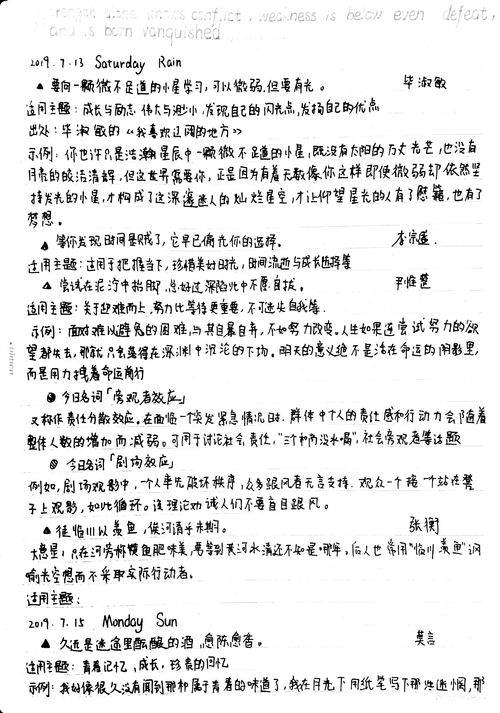 reason alone knows conflict, weakness is below even defeat,
and is born vanquished
2019.7.13 Saturday Rain
▲ 要向一颗微不足道的小星学习,可以微弱,但要有光。 毕淑敏
适用主题:成长与励志 伟大与渺小,发现自己的闪光点,发扬自己的优点
出处:毕淑敏的《我喜欢辽阔的地方》
示例:你也许只是浩瀚星辰中一颗微不足道的小星,既没有太阳的万丈光芒,也没有
月亮的皎洁清辉,但这世界需要你,正是因为有着无数像你这样即使微弱却依然坚
持发光的小星,才构成了这深邃迷人的灿烂星空,才让仰望星光的人有了慰藉,也有了
梦想。
▲ 等你发现时间是贼了,它早已偷光你的选择。 李宗盛
适用主题:适用于把握当下,珍惜美好时光,时间流逝与成长选择等
▲ 尝试在泥泞中抬脚,总好过深陷此中不愿自拔。 尹维楚
适用主题:关于迎难而上,努力比等待更重要,不可迷失自我等
示例:面对难以避免的困难,与其自暴自弃,不如努力改变。人生如果连尝试努力的欲
望都失去,那就只会落得在深渊中沉沦的下场。明天的意义绝不是活在命运的阴影里,
而是用力拽着命运前行
◎ 今日名词「旁观者效应」
又称作责任分散效应。在面临一个突发紧急情况时,群体中个人的责任感和行动力会随着
整体人数的增加而减弱。可用于讨论社会责任,"三个和尚没水喝",社会旁观者等话题
◎ 今日名词「剧场效应」
例如,剧场观影中,一个人率先破坏秩序,众多跟风者无言支持.观众一个接一个站在凳
子上观影,如此循环。该理论劝诫人们不要盲目跟风。
▲ 徒临川以羡鱼,俟河清乎未期。 张衡
大意是:只在河旁称馍鱼肥味美,要等到黄河水清还不知是哪年,后人也常用"临川羡鱼"词
喻光空想而不采取实际行动者。
适用主题:
2019.7.15 Monday Sun
▲ 久远是迷途里酝酿的酒,愈陈愈香。 莫言
适用主题:青春记忆,成长,珍贵的回忆
示例:我好像很久没有闻到那种属于青春的味道了,我在月光下用纸笔写下那些迷惘,那